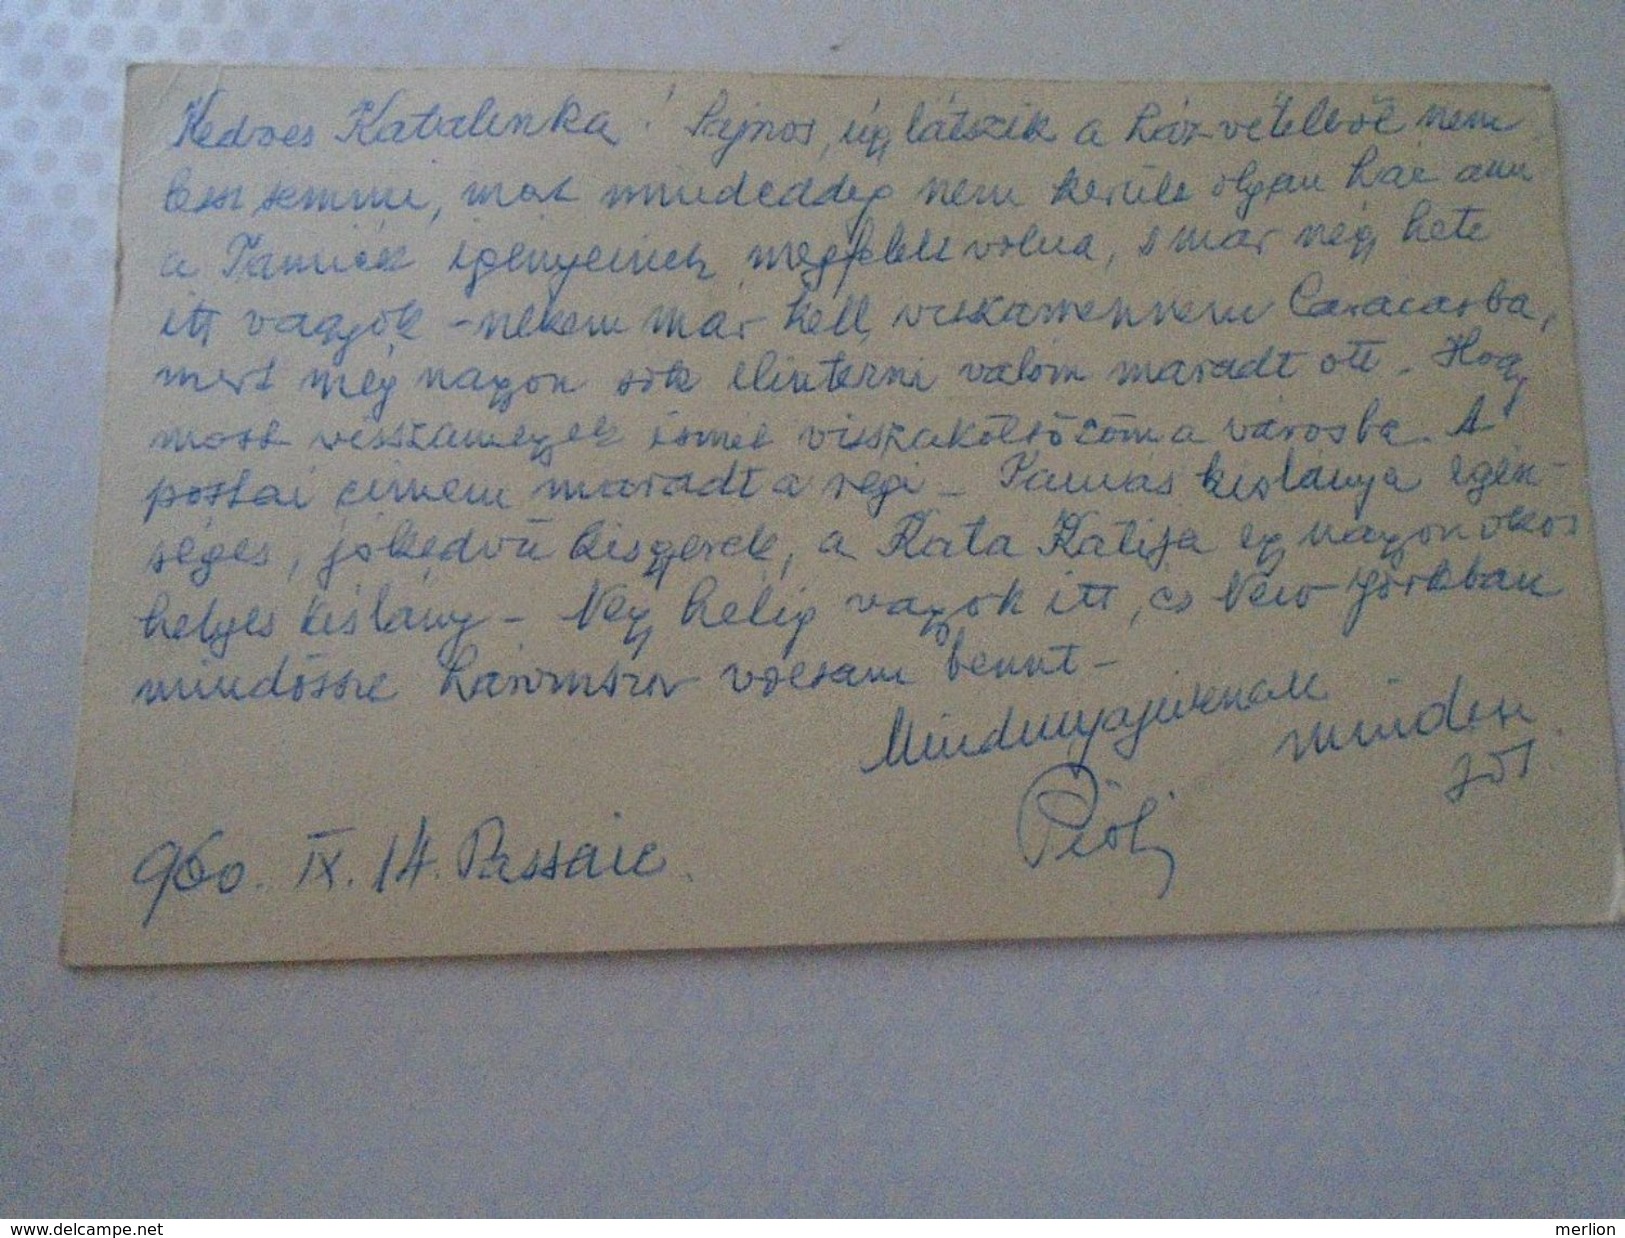 Kedves Katalinka! Sajnos, úgy látszik a házvételből nem
lesz semmi, mert mindeddig nem került olyan ház ami
a Taméék igényeinek megfelelt volna, s már négy hete
itt vagyok - nekem már kell visszamennem Caracasba,
mert még nagyon sok elintézni valóm maradt ott. Hogy
most visszamegyek ismét visszaköltözöm a városba. A
postai címem maradt a régi - Tamás kislánya egész-
séges, jókedvű kisgyerek, a Kata Katija egy nagyon okos
helyes kislány - Négy hétig vagyok itt, és New Yorkban
mindössze háromszor voltam bennt -
Mindnyájuknak minden
jót
960. IX. 14. Passaic